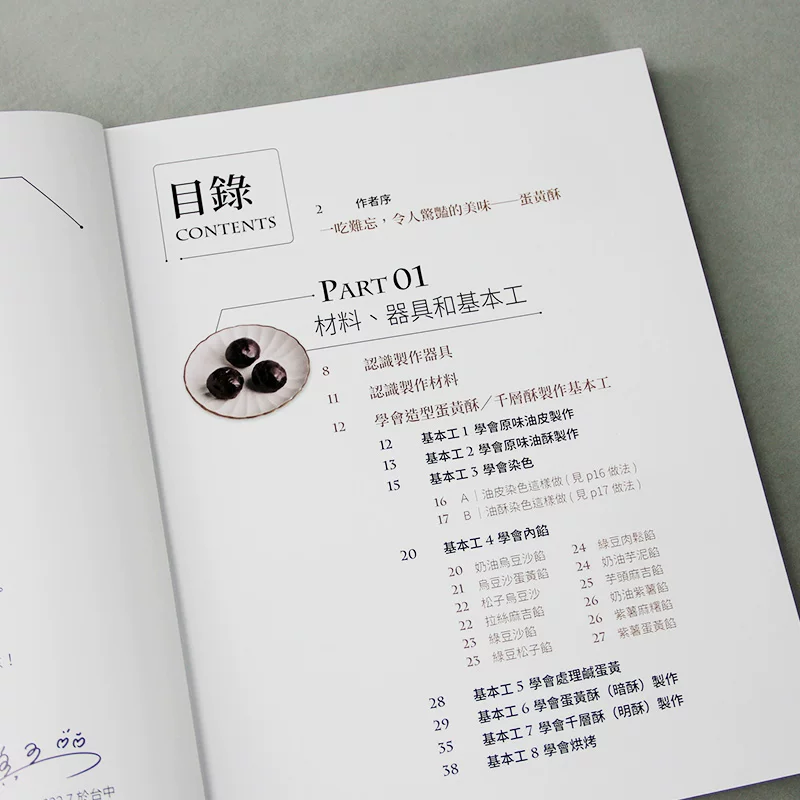 目錄
CONTENTS
2 作者序
一吃難忘，令人驚豔的美味——蛋黃酥
PART 01
材料、器具和基本工
8 認識製作器具
11 認識製作材料
12 學會造型蛋黃酥／千層酥製作基本工
12 基本工 1 學會原味油皮製作
13 基本工 2 學會原味油酥製作
15 基本工 3 學會染色
16 A｜油皮染色這樣做（見 p16 做法）
17 B｜油酥染色這樣做（見 p17 做法）
20 基本工 4 學會內餡
20 奶油烏豆沙餡
21 烏豆沙蛋黃餡
22 松子烏豆沙
22 拉絲麻吉餡
23 綠豆沙餡
23 綠豆松子餡
24 綠豆肉鬆餡
24 奶油芋泥餡
25 芋頭麻吉餡
26 奶油紫薯餡
26 紫薯麻糬餡
27 紫薯蛋黃餡
28 基本工 5 學會處理鹹蛋黃
29 基本工 6 學會蛋黃酥（暗酥）製作
35 基本工 7 學會千層酥（明酥）製作
38 基本工 8 學會烘烤
7 於台中